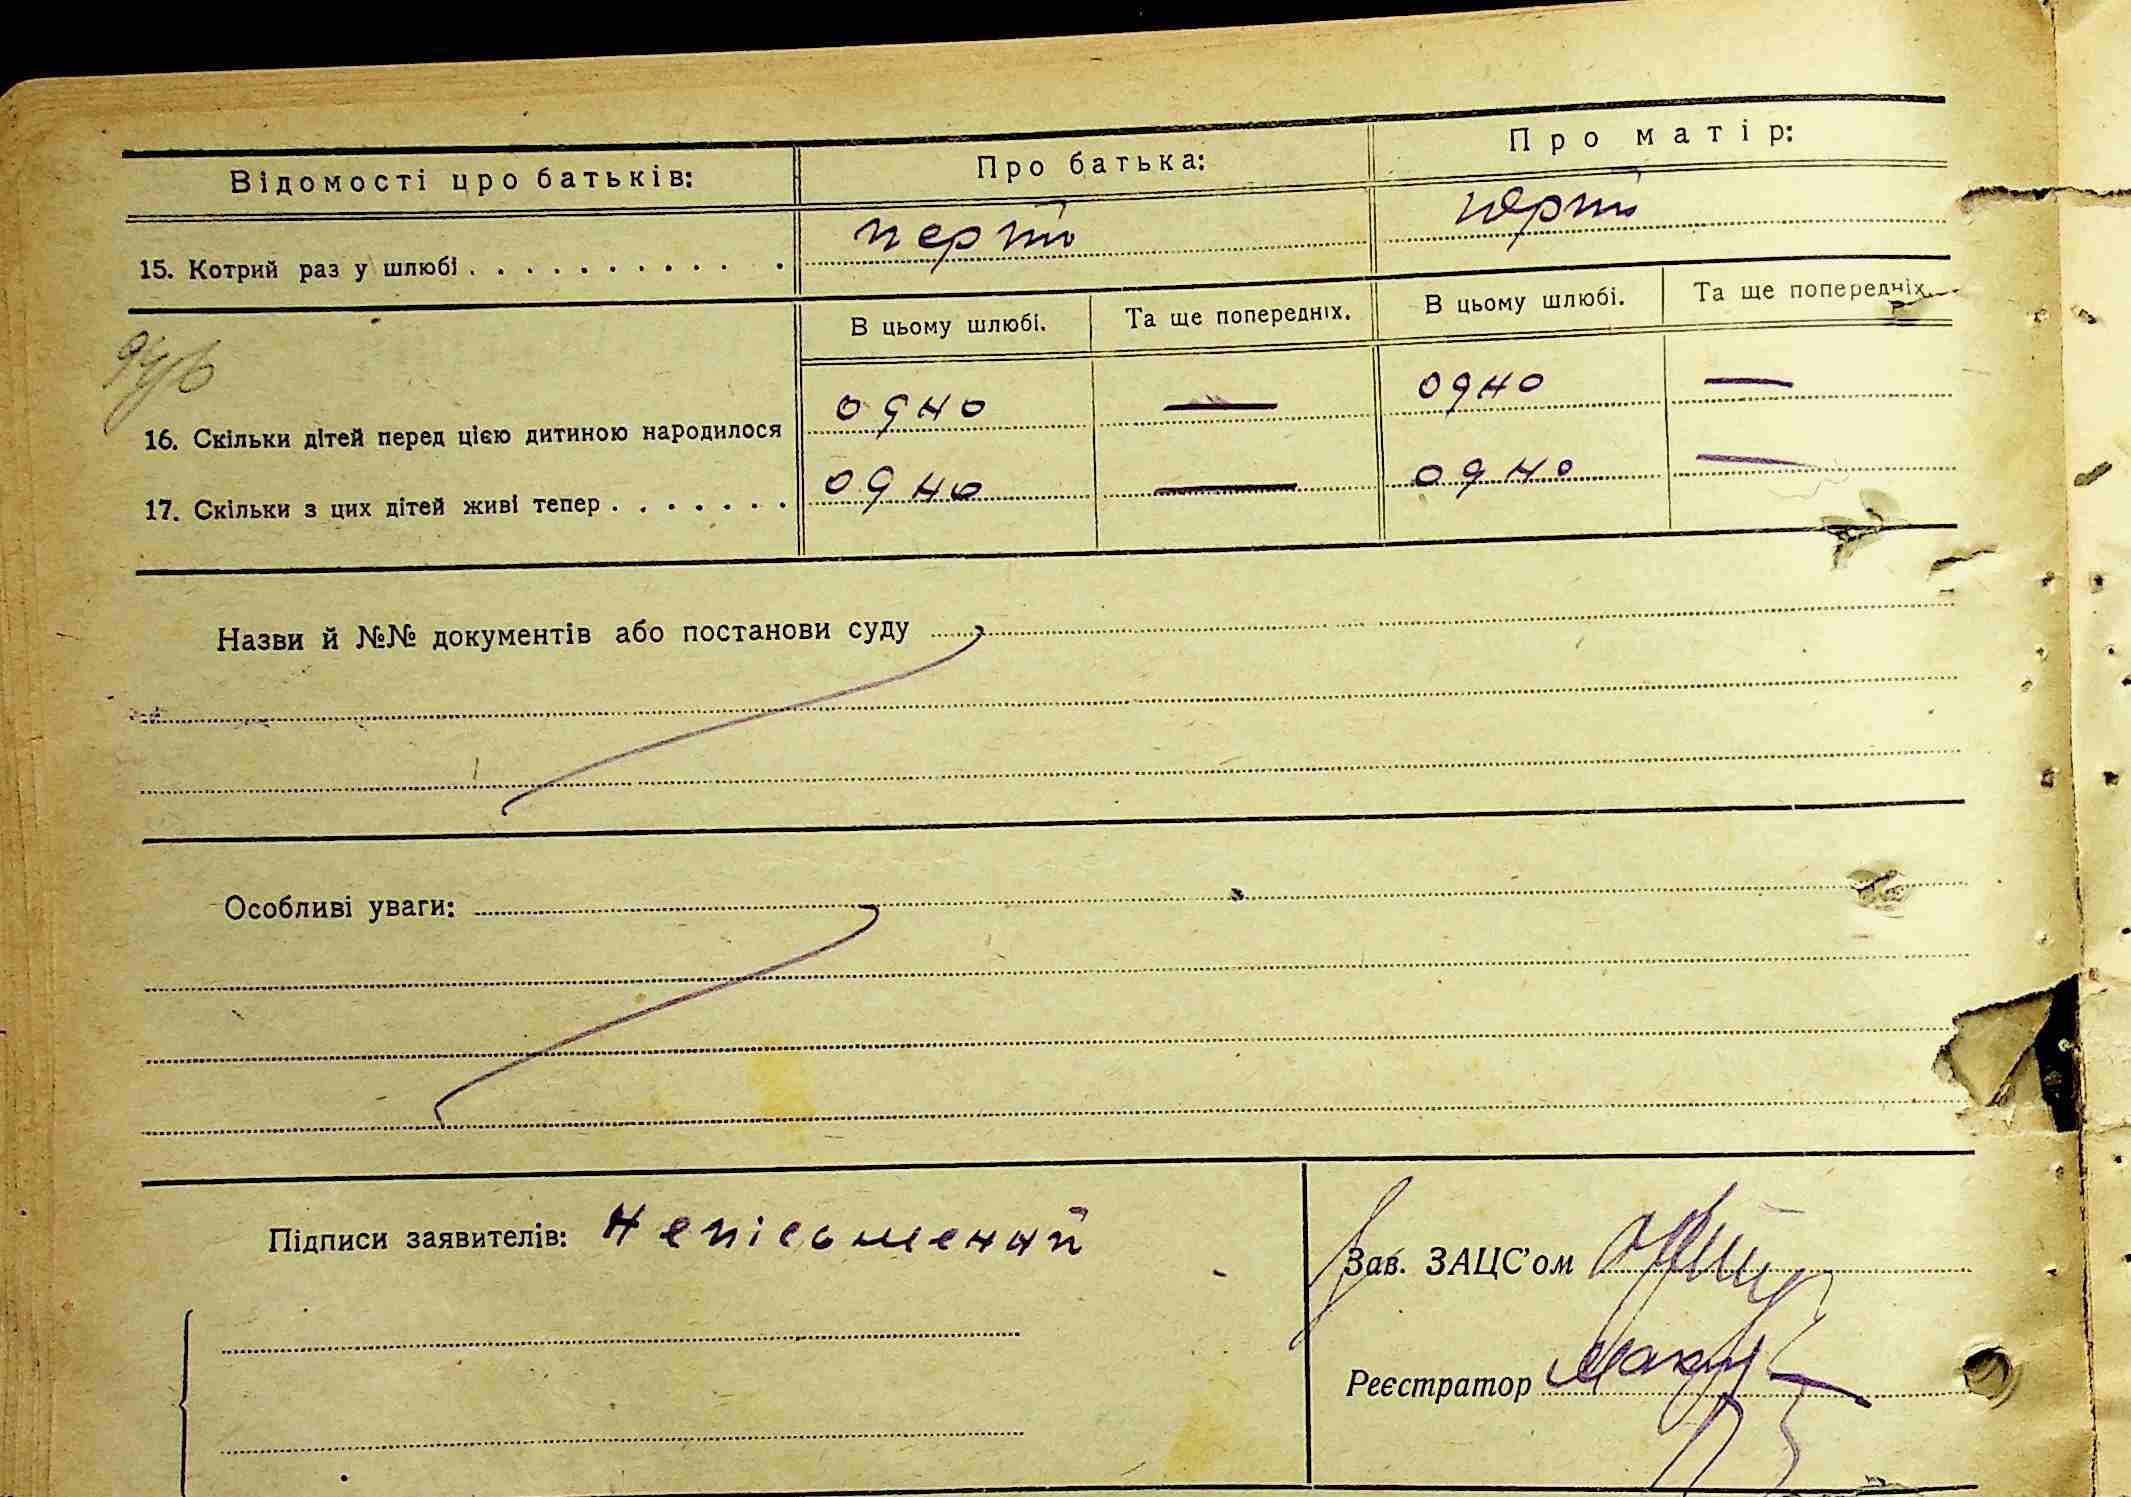 Відомості про батьків: Про батька: Про матір:
15. Котрий раз у шлюбі . . . . . . . . . . . . перший перший
В цьому шлюбі. Та ще попередніх. В цьому шлюбі. Та ще попередніх.
16. Скільки дітей перед цією дитиною народилося одно — одно —
17. Скільки з цих дітей живі тепер . . . . . . . одно — одно —
Назви й №№ документів або постанови суду
Особливі уваги:
Підписи заявителів: Неписьмений
Зав. ЗАЦС'ом
Реєстратор